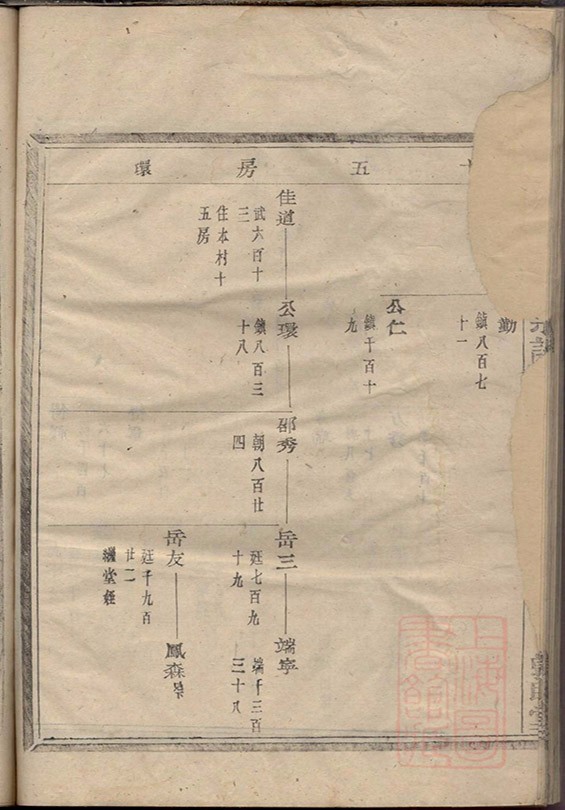 五房環
勤
鎮八百七
十一
公仁
鎮千百十
九
佳道
武六百十
三
住本村十
五房
公環
鎮八百三
十八
邵秀
朝八百廿
四
岳三
廷七百九
十九
端寧
端千三百
三十八
岳友
廷千九百
廿二
鳳森